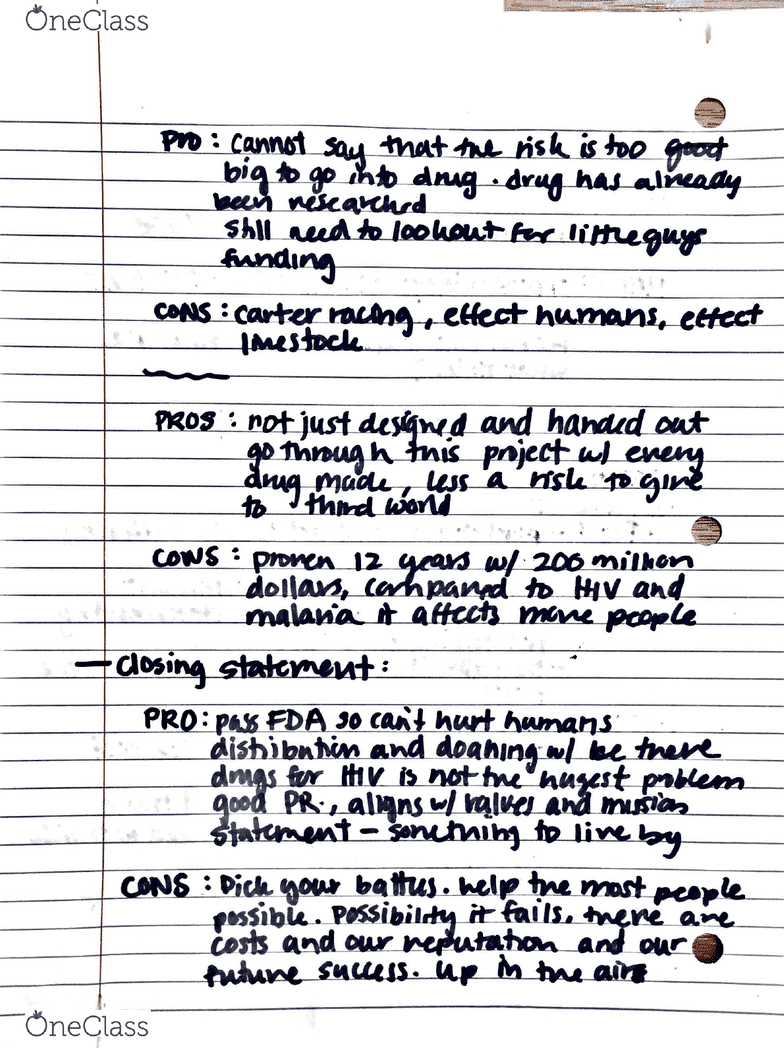 OneClass
Pro : cannot say that the risk is too good
big to go into drug . drug has already
been researched
still need to lookout for little guys
funding
CONS : carter racing , effect humans, effect
livestock
PROS : not just designed and handed out
go through this project w/ every
drug made , less a risk to give
to third world
CONS : proven 12 years w/ 206 million
dollars, compared to HIV and
malaria it affects more people
— Closing statement :
PRO : pass FDA so can't hurt humans
distribution and doaning w/ be there
drugs for HIV is not the hugest problem
good PR., aligns w/ values and mission
statement – something to live by
CONS : Pick your battles . help the most people
possible. Possibility it fails. there are
costs and our reputation and our
future success. up in the air
OneClass